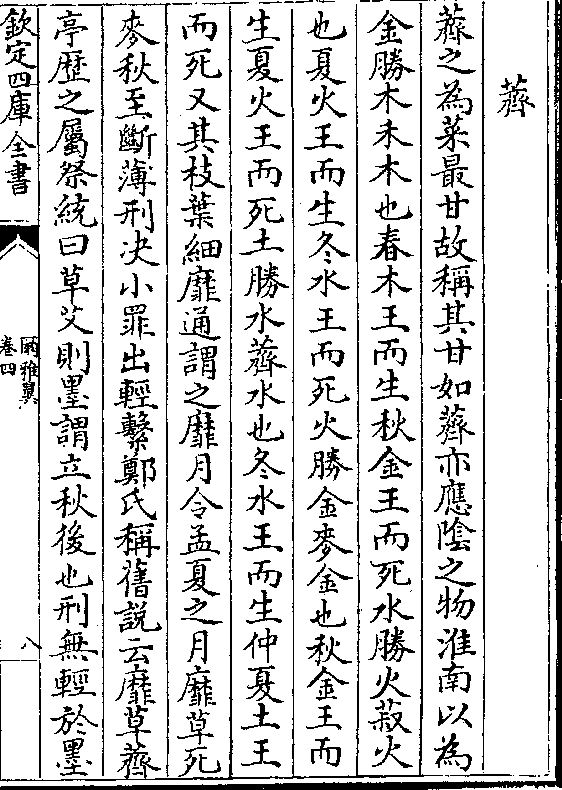 薺
薺之為菜最甘故稱其甘如薺亦應陰之物淮南以為
金勝木禾木也春木王而生秋金王而死水勝火菽火
也夏火王而生冬水王而死火勝金麥金也秋金王而
生夏火王而死土勝水薺水也冬水王而生仲夏土王
而死又其枝葉細靡通謂之靡月令孟夏之月靡草死
麥秋至斷薄刑決小罪出輕繫鄭氏稱舊説云靡草薺
亭歴之屬祭統曰草艾則墨謂立秋後也刑無輕於墨
欽定四庫全書
爾雅翼
卷四
八